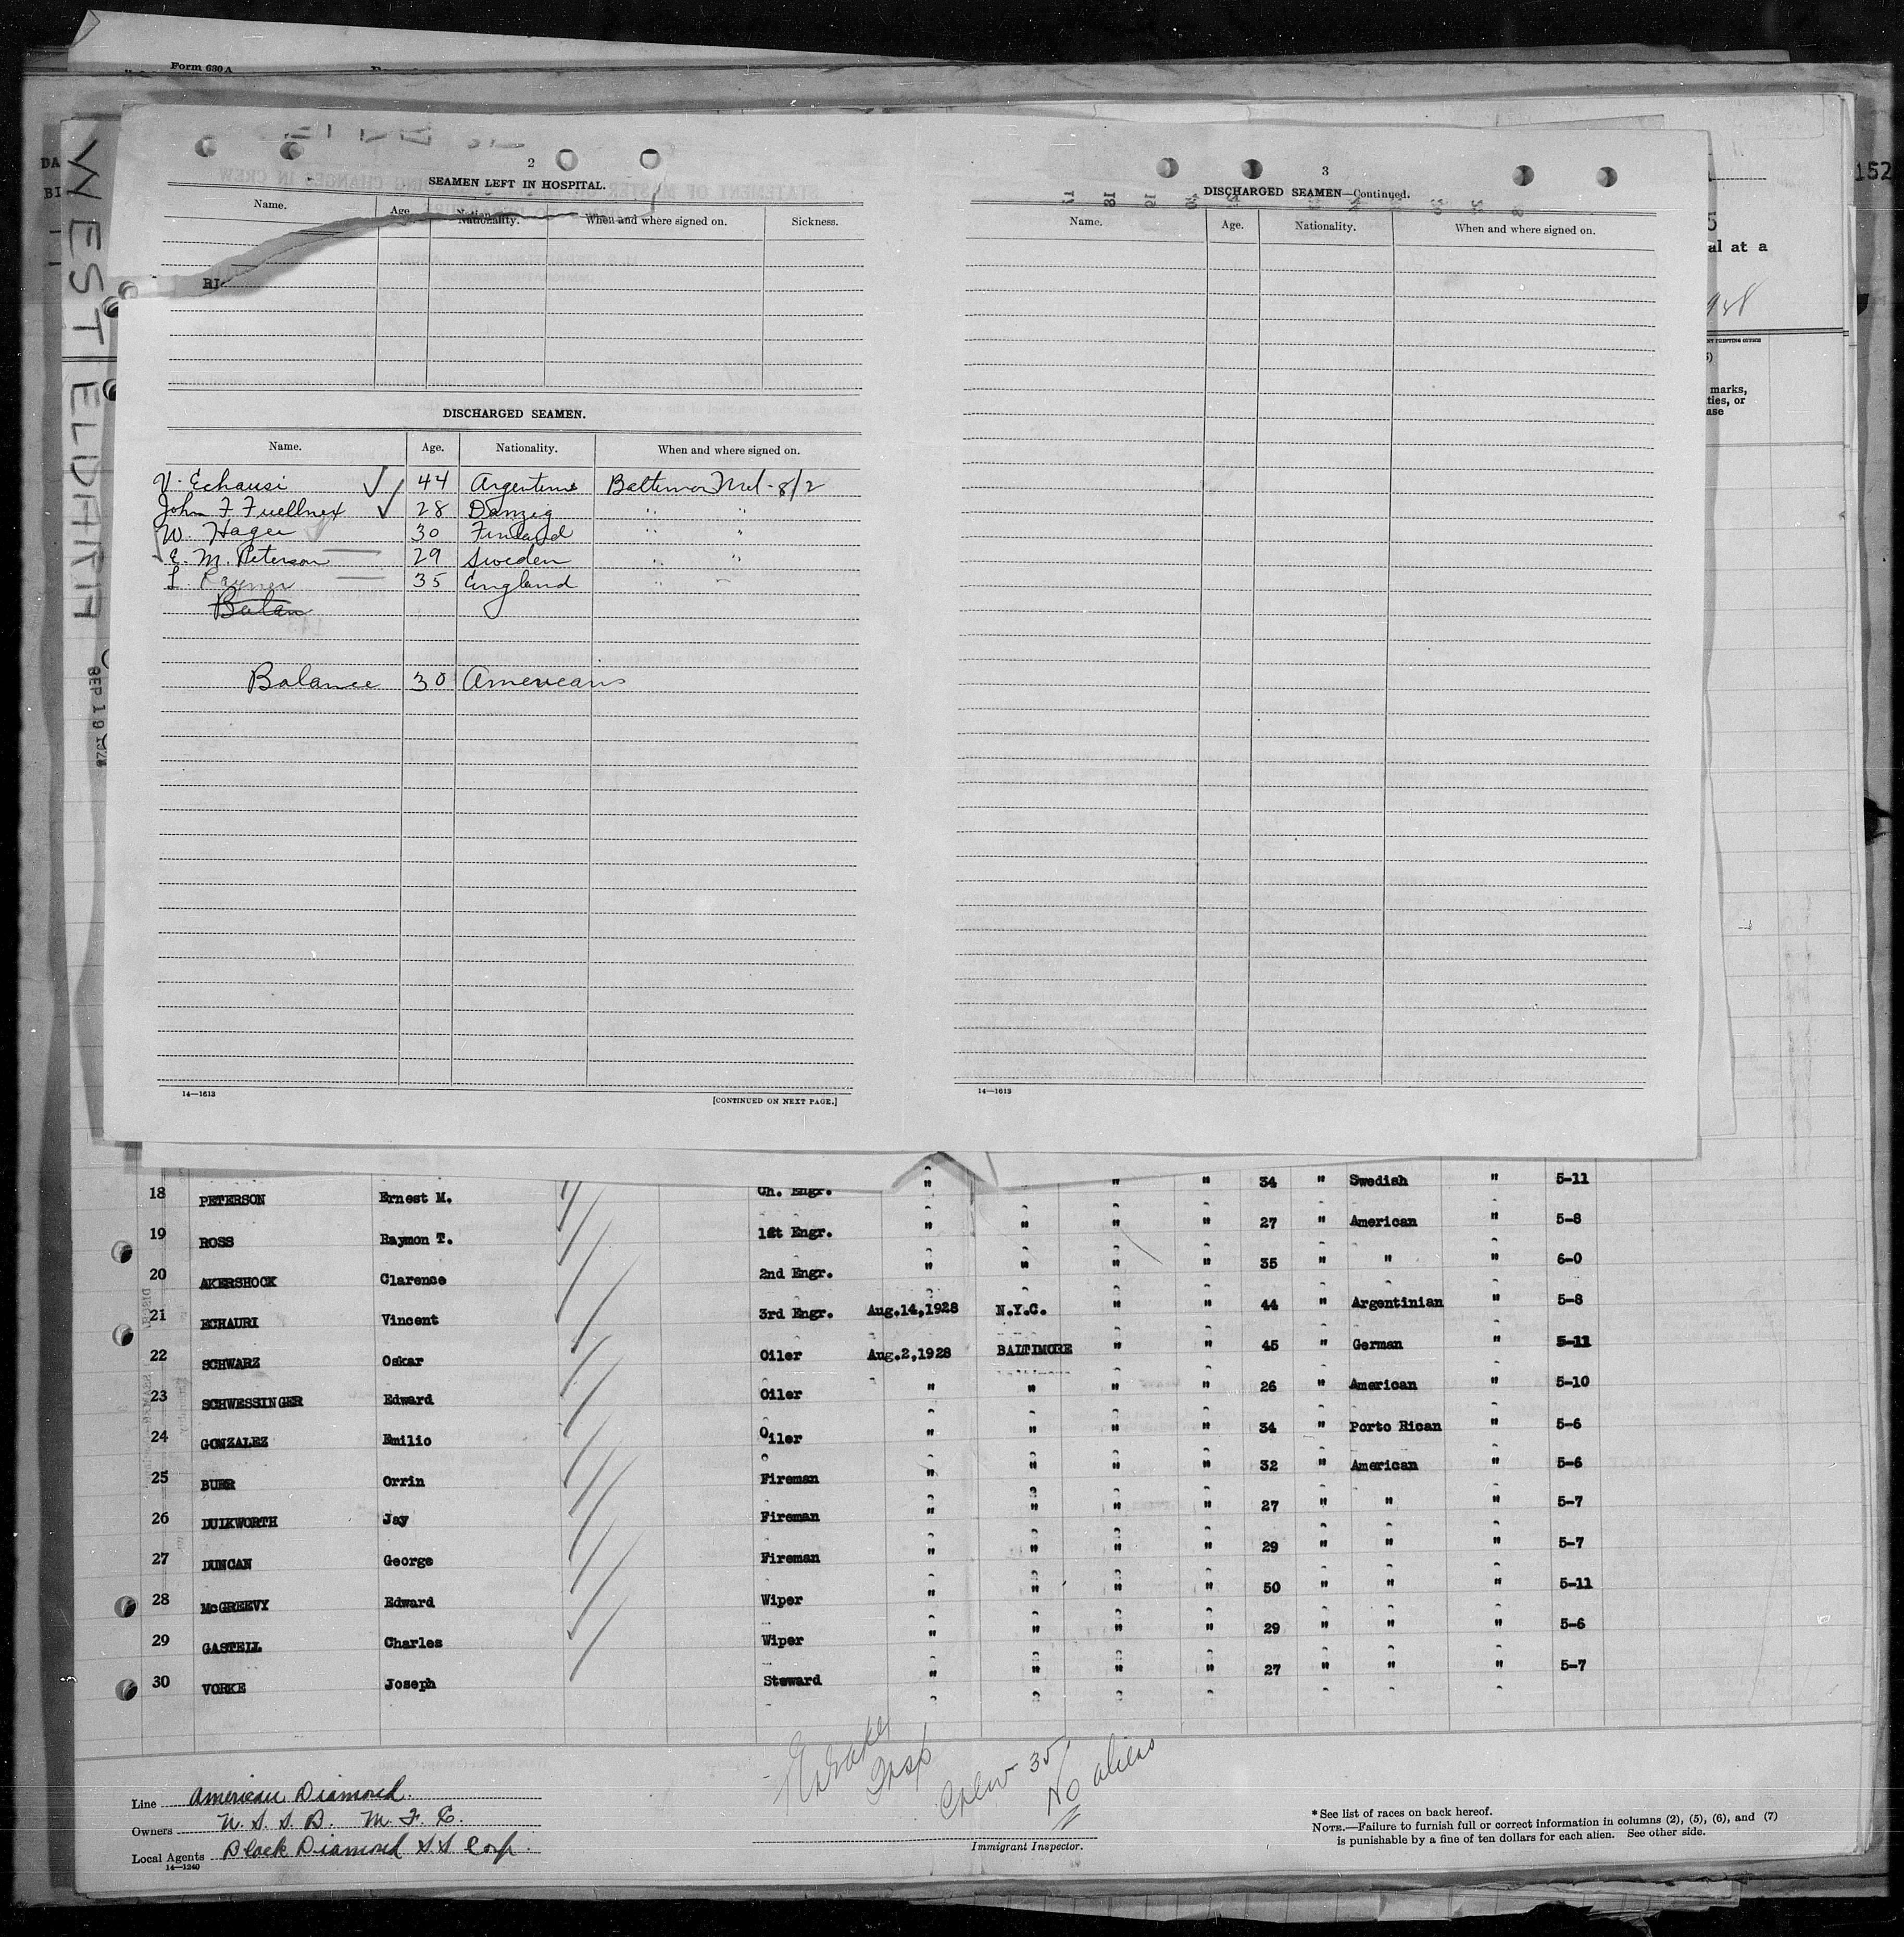 Form 680 A
152
DA
BI
WEST ELDARA
SEP 19 1928
2
SEAMEN LEFT IN HOSPITAL.
Name. Age. Nationality. When and where signed on. Sickness.
DISCHARGED SEAMEN.
Name. Age. Nationality. When and where signed on.
V. Echausi 44 Argentine Baltimore Md - 8/2
John F Fuellner 28 Danzig " "
W. Hager 30 Finland " "
E. M. Peterson 29 Sweden " "
L. Rayner 35 England " "
Balan
Balance 30 Americans
14—1613 [CONTINUED ON NEXT PAGE.]
3
DISCHARGED SEAMEN—Continued.
Name. Age. Nationality. When and where signed on.
14—1613
5
al at a
marks,
ties, or
ase
18 PETERSON Ernest M. Ch. Engr. " " " 34 " Swedish " 5-11
19 ROSS Raymon T. 1st Engr. " " " " 27 " American " 5-8
20 AKERSHOCK Clarence 2nd Engr. " " " " 35 " " " 6-0
21 ECHAURI Vincent 3rd Engr. Aug.14,1928 N.Y.C. " " 44 " Argentinian " 5-8
22 SCHWARZ Oskar Oiler Aug.2,1928 BALTIMORE " " 45 " German " 5-11
23 SCHWESSINGER Edward Oiler " " " " 26 " American " 5-10
24 GONZALEZ Emilio Oiler " " " " 34 " Porto Rican " 5-6
25 BURR Orrin Fireman " " " " 32 " American " 5-6
26 DUIKWORTH Jay Fireman " " " " 27 " " " 5-7
27 DUNCAN George Fireman " " " " 29 " " " 5-7
28 McGREEVY Edward Wiper " " " " 50 " " " 5-11
29 GASTELL Charles Wiper " " " " 29 " " " 5-6
30 VORKE Joseph Steward " " " " 27 " " " 5-7
Insp
Crew 35
No aliens
Line American Diamond.
Owners U. S. S. B. M. F. C.
Local Agents Black Diamond SS Corp.
14—1240
Immigrant Inspector.
* See list of races on back hereof.
NOTE.—Failure to furnish full or correct information in columns (2), (5), (6), and (7)
is punishable by a fine of ten dollars for each alien. See other side.